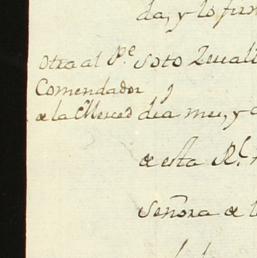 da, y lo fir
Otra al P.e Soto
Comendador
de la Merced dia mes, y
de esta R.l
Señora de